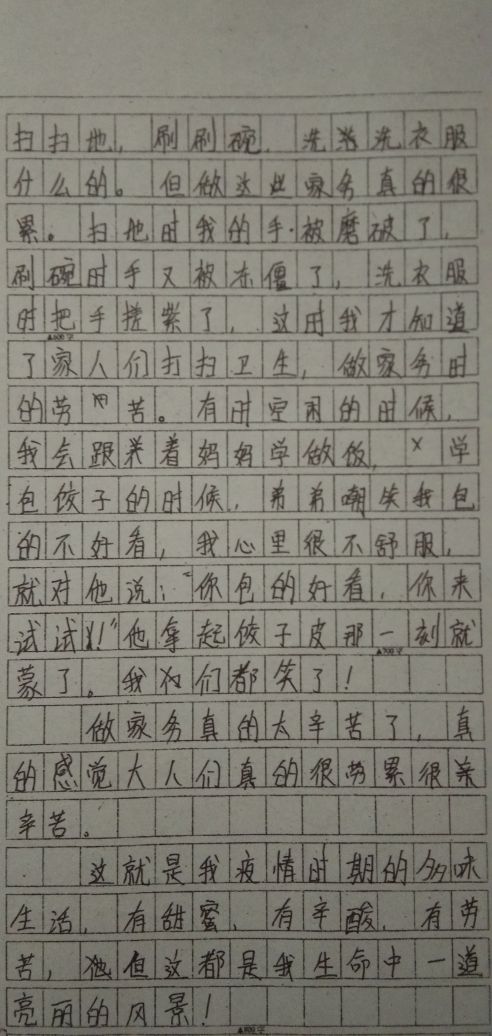 扫扫地，刷刷碗，洗洗衣服
什么的。但做这些家务真的很
累。扫地时我的手被磨破了，
刷碗时手又被冻僵了，洗衣服
时把手搓紫了，这时我才知道
▲600字
了家人们打扫卫生，做家务时
的劳苦。有时空闲的时候，
我会跟着妈妈学做饭，学
包饺子的时候，弟弟嘲笑我包
的不好看，我心里很不舒服，
就对他说：“你包的好看，你来
试试！”他拿起饺子皮那一刻就
▲700字
蒙了。我们都笑了！
做家务真的太辛苦了，真
的感觉大人们真的很劳累很
辛苦。
这就是我疫情时期的多味
生活，有甜蜜，有辛酸，有劳
苦，但这都是我生命中一道
亮丽的风景！
▲800字